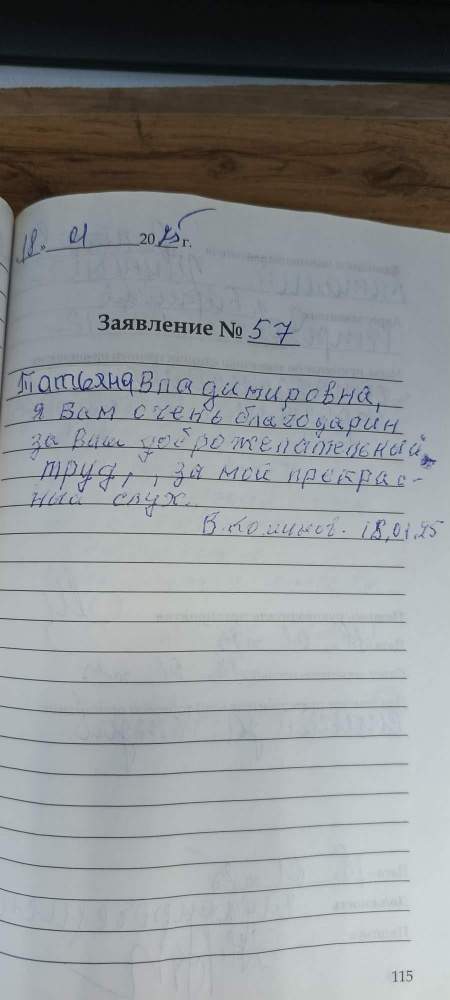 18. 01 2025 г.
Заявление № 57
Татьяна Владимировна,
я Вам очень благодарин
за Ваш доброжелательный
труд, , за мой прекрас-
ный слух.
В. 18,01,25
115